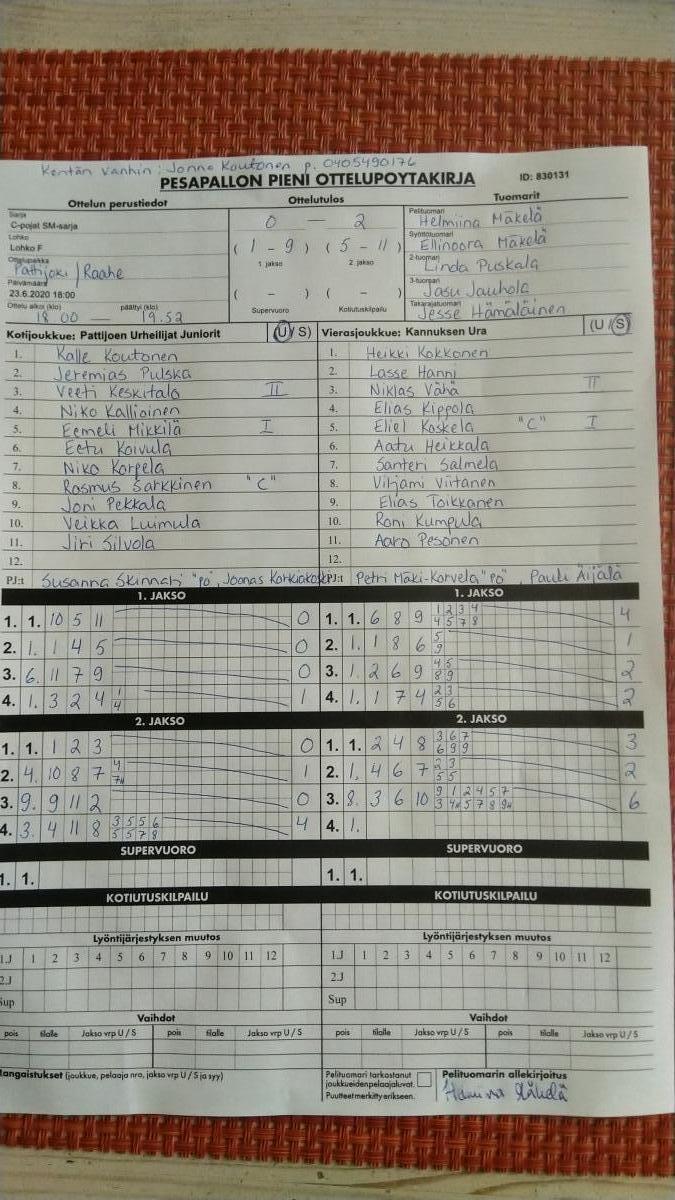 Kentän vanhin: Jonne Koutonen p. 0405490176
PESAPALLON PIENI OTTELUPOYTAKIRJA ID: 830131
Ottelun perustiedot Ottelutulos Tuomarit
Sarja
C-pojat SM-sarja
Lohko
Lohko F
Ottelupaikka
Pattijoki / Raahe
Päivämäärä
23.6.2020 18:00
Ottelu alkoi (klo) päättyi (klo)
18.00 — 19.52
0 — 2
( 1 - 9 ) ( 5 - 11 )
1. jakso 2. jakso
( - ) ( - )
Supervuoro Kotiutuskilpailu
Pelituomari
Helmiina Mäkelä
Syöttötuomari
Ellinoora Mäkelä
2-tuomari
Linda Puskala
3-tuomari
Jasu Jauhola
Takarajatuomari
Jesse Hämäläinen
Kotijoukkue: Pattijoen Urheilijat Juniorit (U/S)
1. Kalle Koutonen
2. Jeremias Pulska
3. Veeti Keskitalo II
4. Niko Kallioinen
5. Eemeli Mikkilä I
6. Eetu Koivula
7. Niko Korpela
8. Rasmus Sarkkinen "C"
9. Joni Pekkala
10. Veikka Luumula
11. Jiri Silvola
12.
PJ:t Susanna Skinnari "PO", Joonas Korkiakoski
Vierasjoukkue: Kannuksen Ura (U/S)
1. Heikki Kokkonen
2. Lasse Hanni
3. Niklas Vähä II
4. Elias Kippola
5. Eliel Koskela "C" I
6. Aatu Heikkala
7. Santeri Salmela
8. Viljami Viitanen
9. Elias Toikkanen
10. Roni Kumpula
11. Aaro Pesonen
12.
PJ:t Petri Mäki-Korvela "PO", Pauli Äijälä
1. JAKSO
1. 1. 10 5 11 0
2. 1. 1 4 5 0
3. 6. 11 7 9 0
4. 1. 3 2 4 1 4 1
2. JAKSO
1. 1. 1 2 3 0
2. 4. 10 8 7 4 7H 1
3. 9. 9 11 2 0
4. 3. 4 11 8 3 5 5 6 5 5 7 8 4
SUPERVUORO
1. 1.
KOTIUTUSKILPAILU
1. JAKSO
1. 1. 6 8 9 1 2 3 4 4 5 7 8 4
2. 1. 1 8 6 5 9 1
3. 1. 2 6 9 4 5 8 9 2
4. 1. 1 7 4 2 3 5 6 2
2. JAKSO
1. 1. 2 4 8 3 6 7 6 9 9 3
2. 1. 4 6 7 2 3 5 5 2
3. 8. 3 6 10 9 1 2 4 5 7 3 4H 5 7 8 9H 6
4. 1.
SUPERVUORO
1. 1.
KOTIUTUSKILPAILU
Lyöntijärjestyksen muutos
1.J 1 2 3 4 5 6 7 8 9 10 11 12
2.J
Sup
Vaihdot
pois tilalle Jakso vrp U / S pois tilalle Jakso vrp U / S
Lyöntijärjestyksen muutos
1.J 1 2 3 4 5 6 7 8 9 10 11 12
2.J
Sup
Vaihdot
pois tilalle Jakso vrp U / S pois tilalle Jakso vrp U / S
Rangaistukset (joukkue, pelaaja nro, jakso vrp U / S ja syy)
Pelituomari tarkastanut
joukkueiden pelaajaluvat.
Puutteet merkitty erikseen.
Pelituomarin allekirjoitus
Helmiina Mäkelä